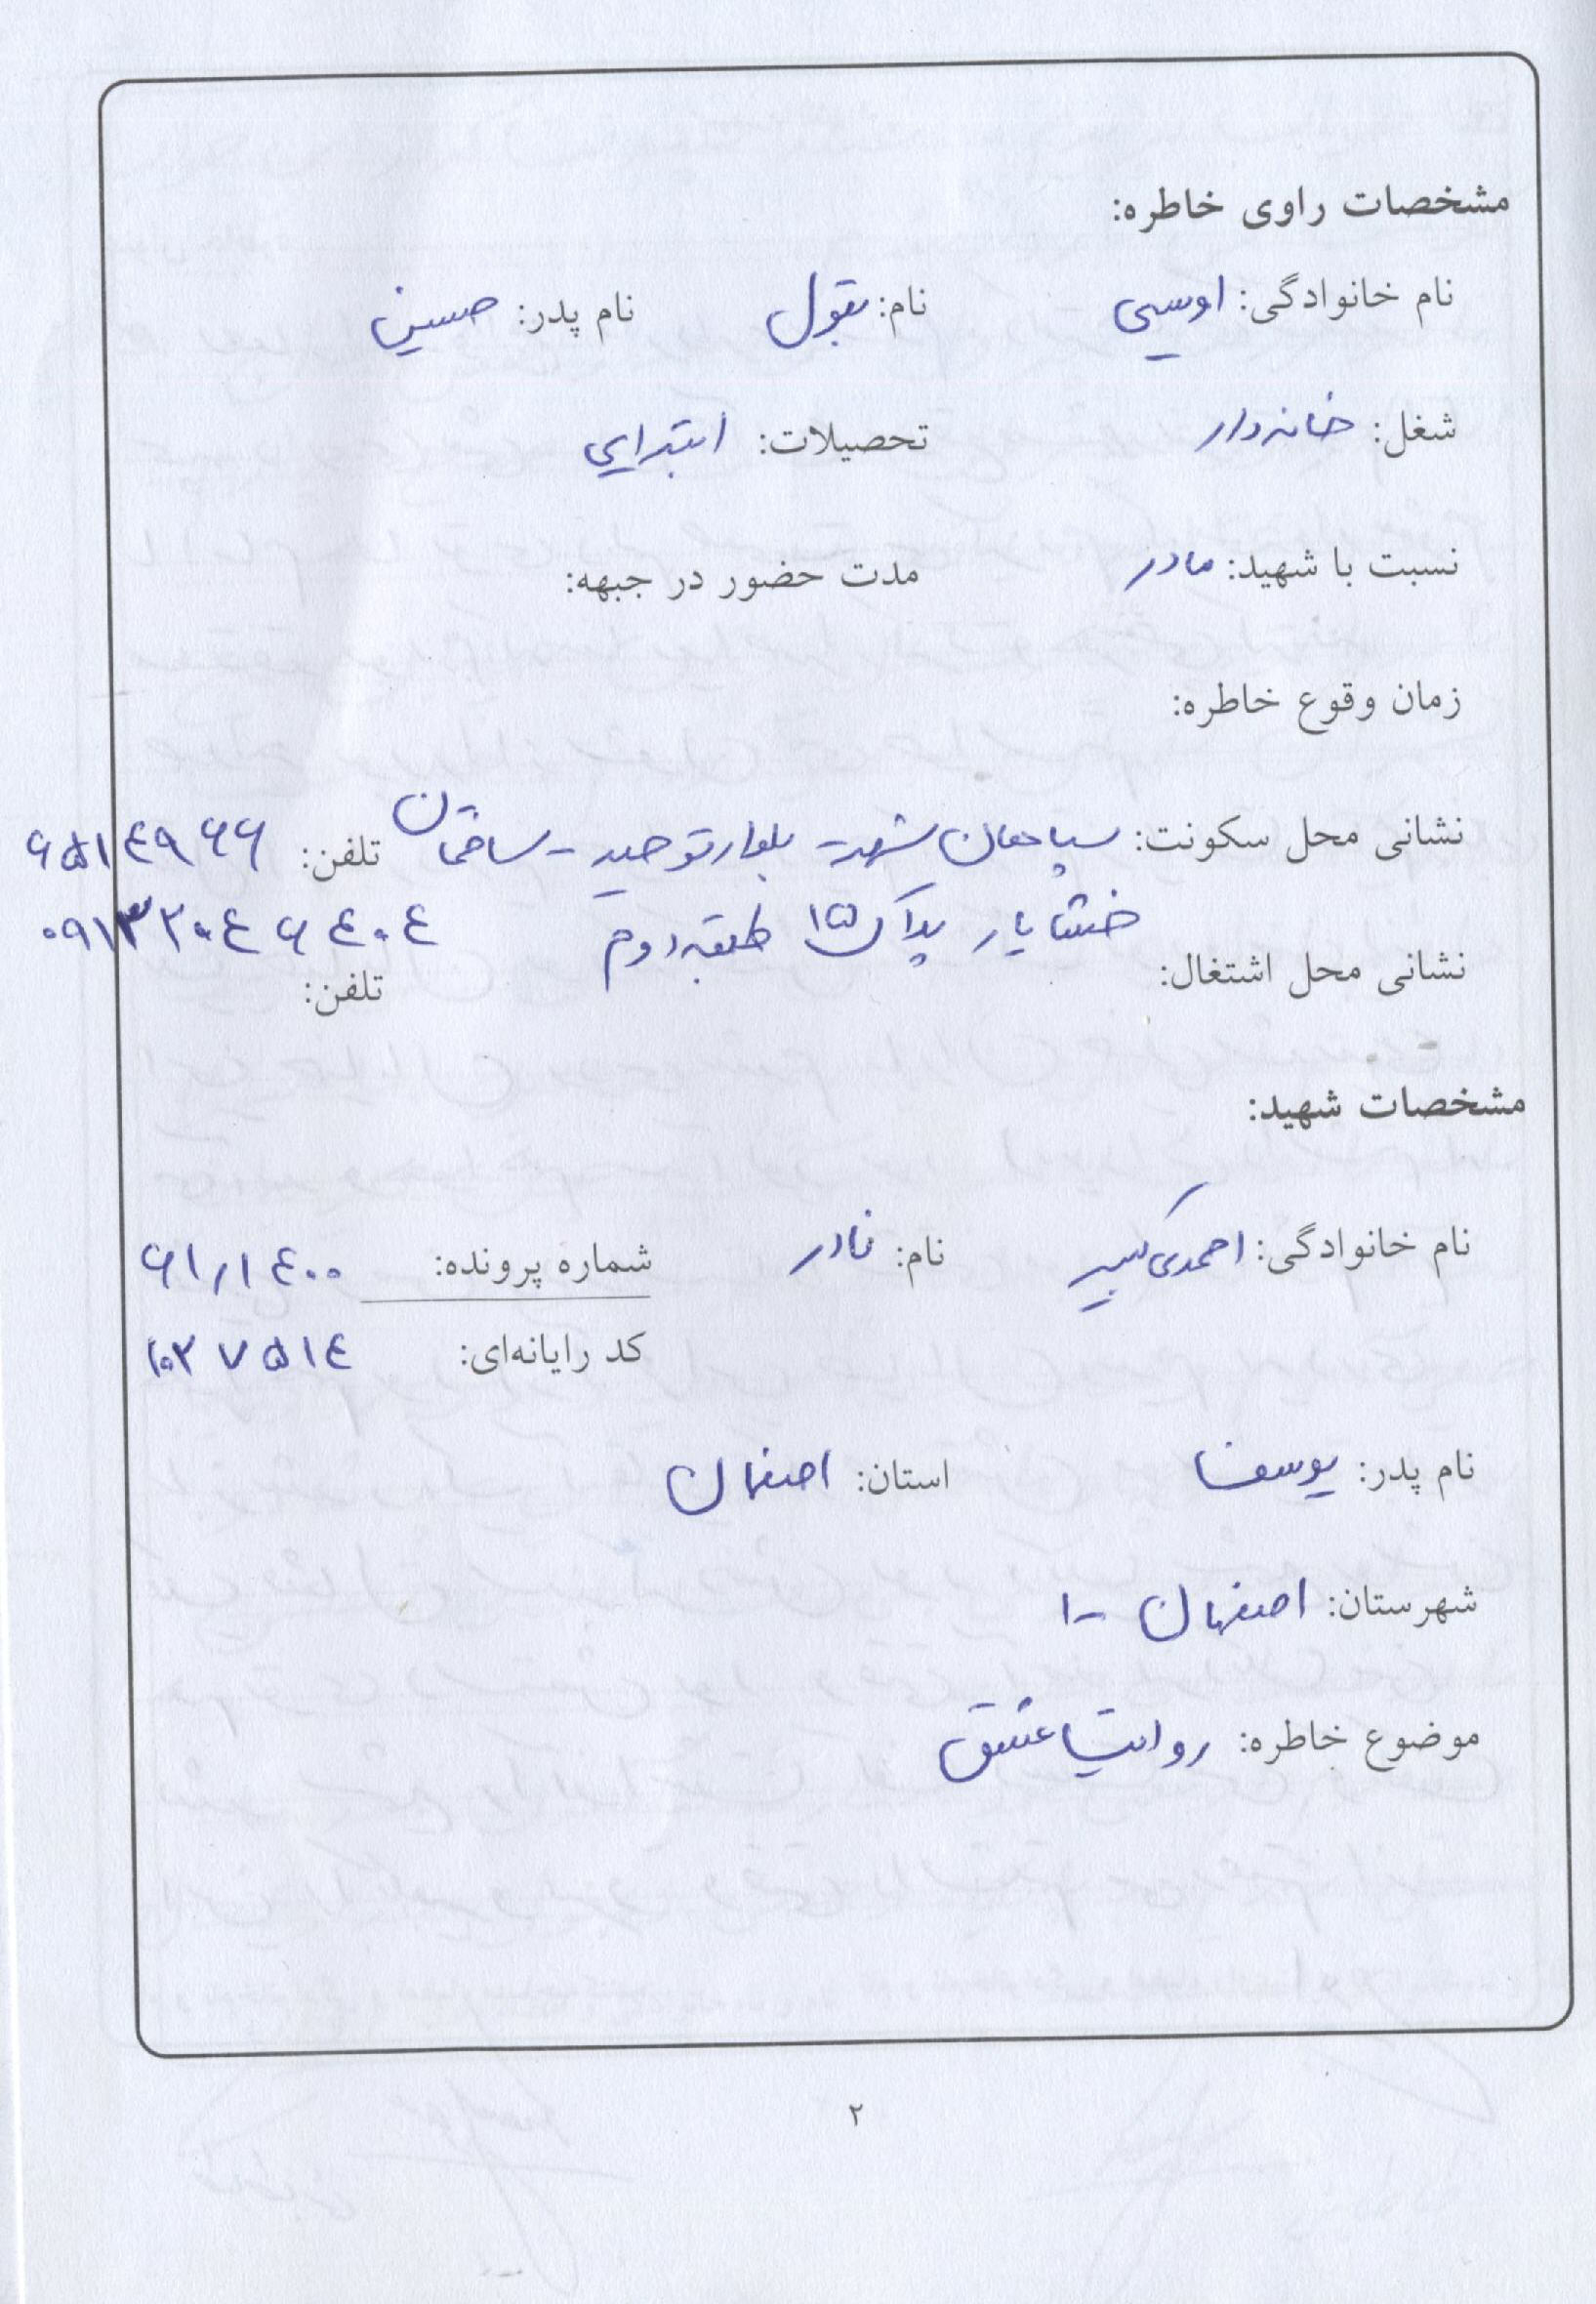 مشخصات راوی خاطره:
نام خانوادگی: اویسی نام: بتول نام پدر: حسین
شغل: خانه‌دار تحصیلات: ابتدایی
نسبت با شهید: مادر مدت حضور در جبهه:
زمان وقوع خاطره:
نشانی محل سکونت: سپاهان‌شهر - بلوار توحید - ساختمان تلفن: ۶۵۱۴۹۶۶
خشایار پلاک ۱۵ طبقه دوم ۰۹۱۳۲۰۴۶۴۰۴
نشانی محل اشتغال: تلفن:
مشخصات شهید:
نام خانوادگی: احمدی نام: نادر شماره پرونده: ۶۱/۱۴۰۰
کد رایانه‌ای: ۱۰۲۷۵۱۴
نام پدر: یوسف استان: اصفهان
شهرستان: اصفهان -۱
موضوع خاطره: روایت عشق
۲